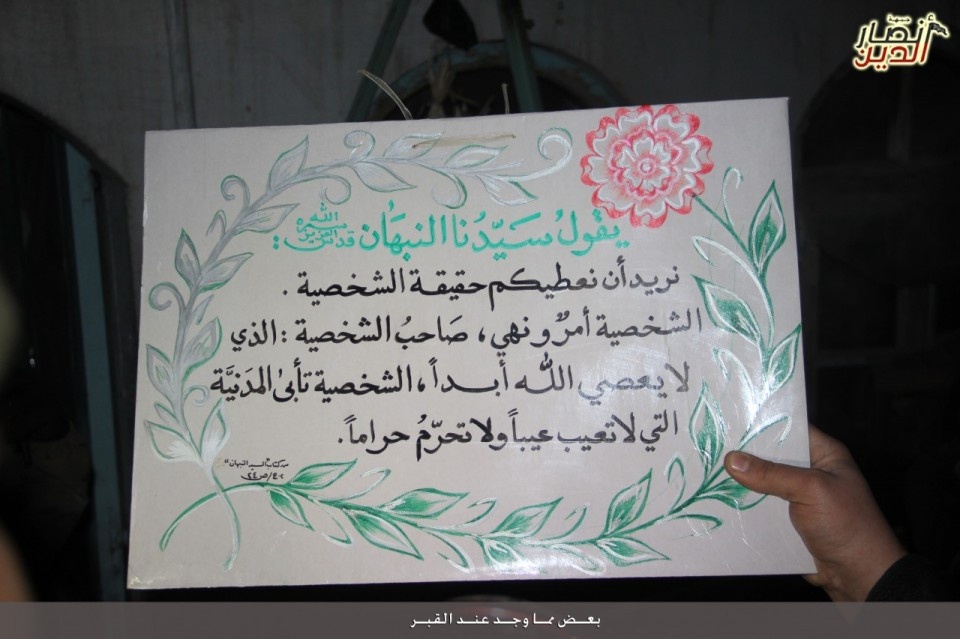 جبهة
أنصار
الدين
يقول سَيّدُنا النبهَان قدّس الله سره العزيز :
نريد أن نعطيكم حقيقة الشخصية .
الشخصية أمرٌ ونهي ، صَاحبُ الشخصية : الذي
لا يعصي الله أبداً ، الشخصية تأبى المدَنيَّة
التي لا تعيب عيباً ولا تحرّمُ حراماً .
من كتاب "السيد النبهان"
ج٢/ص٢٤
بعض مما وجد عند القبر